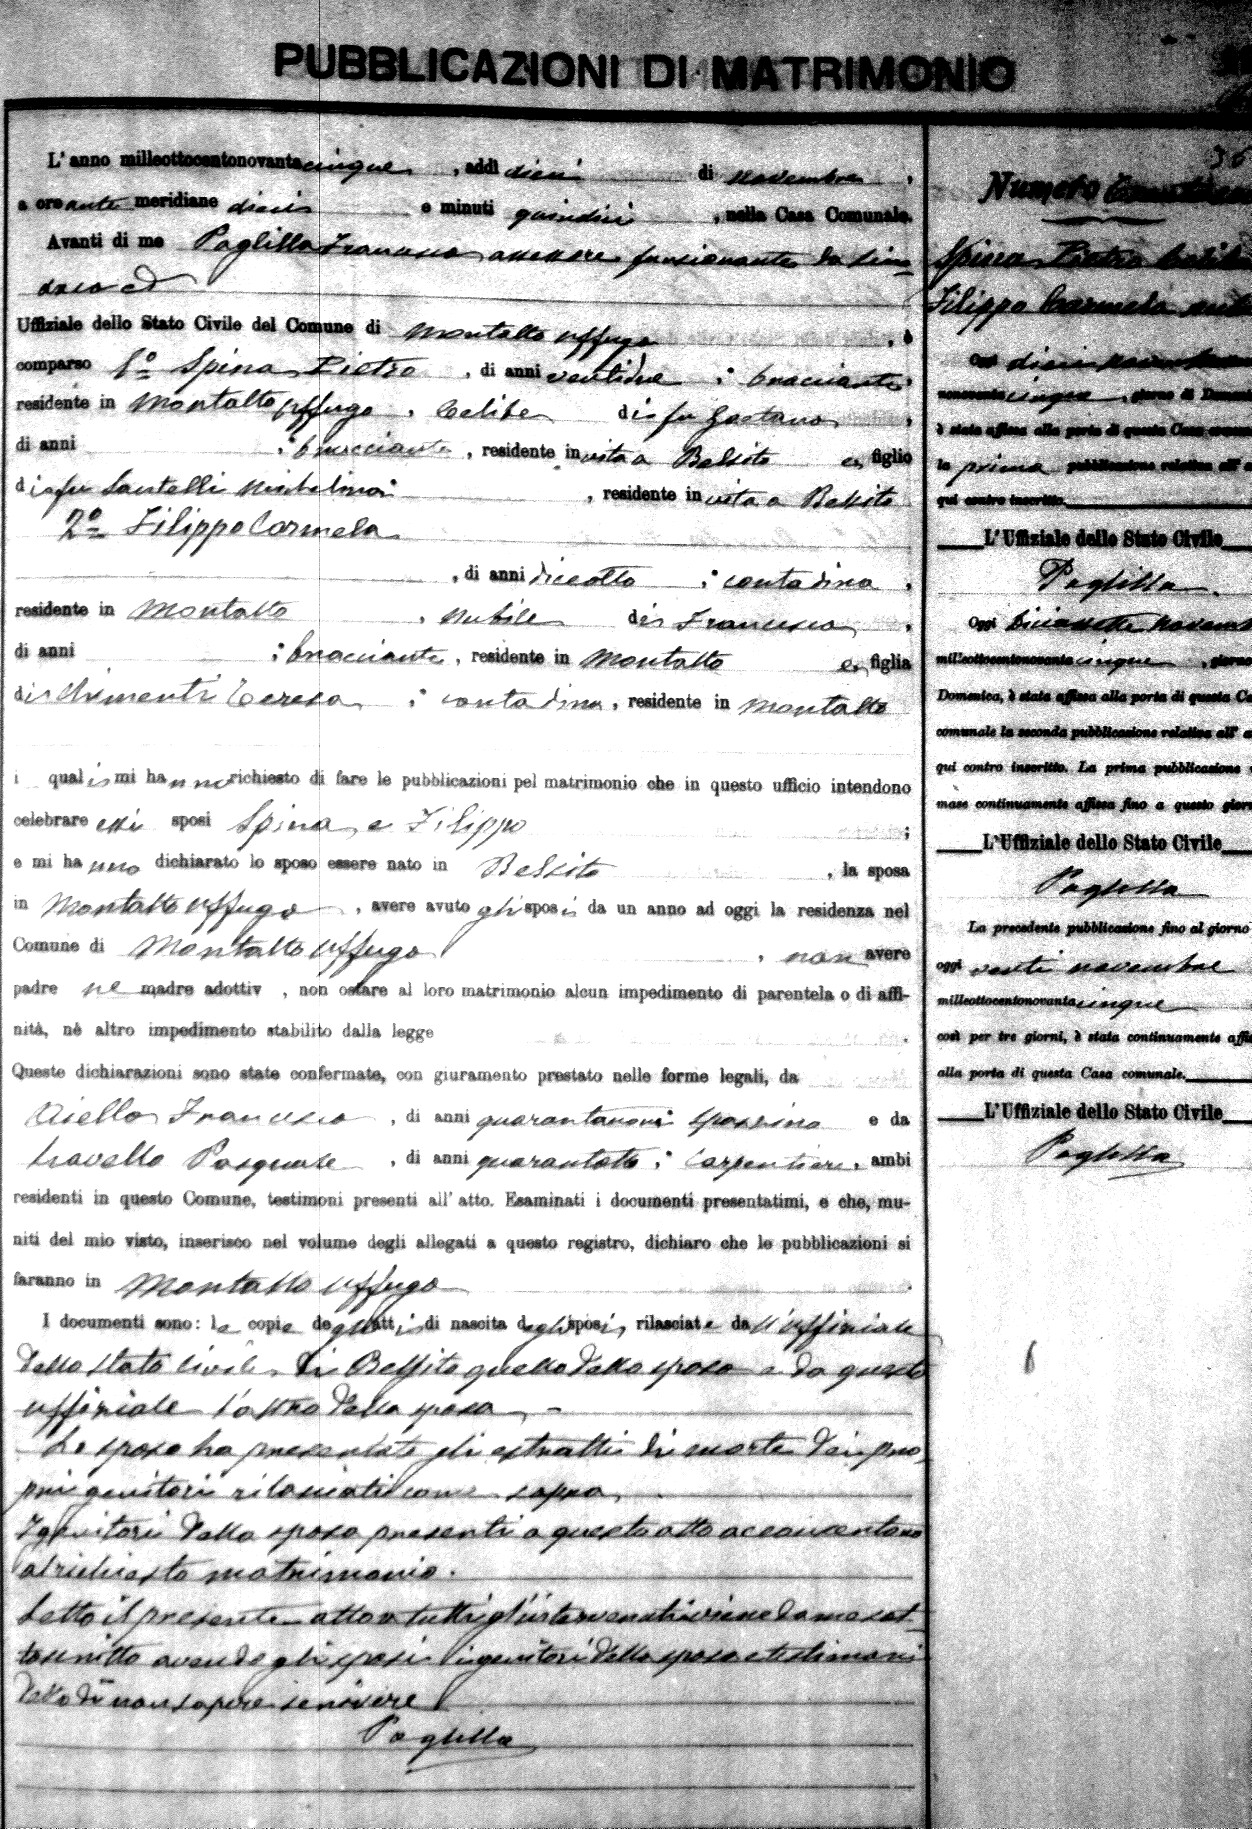 PUBBLICAZIONI DI MATRIMONIO
L'anno milleottocentonovantacinque, addì dieci di novembre,
a ore ante meridiane dieci e minuti quindici, nella Casa Comunale.
Avanti di me Paglilla Francesco assessore funzionante da sin-
daco ed
Uffiziale dello Stato Civile del Comune di Montalto Uffugo, è
comparso 1º Spina Pietro, di anni ventidue; bracciante,
residente in Montalto Uffugo, celibe di fu Gaetano,
di anni ; bracciante, residente in vita a Belsito e figlio
di fu Santelli Michelina, residente in vita a Belsito
2º Filippo Carmela
, di anni diciotto; contadina,
residente in Montalto, nubile di Francesco,
di anni ; bracciante, residente in Montalto e figlia
di Chimenti Teresa; contadina, residente in Montalto
i quali mi hanno richiesto di fare le pubblicazioni pel matrimonio che in questo ufficio intendono
celebrare essi sposi Spina e Filippo;
e mi hanno dichiarato lo sposo essere nato in Belsito, la sposa
in Montalto Uffugo, avere avuto gli sposi da un anno ad oggi la residenza nel
Comune di Montalto Uffugo, non avere
padre né madre adottiv , non ostare al loro matrimonio alcun impedimento di parentela o di affi-
nità, nè altro impedimento stabilito dalla legge.
Queste dichiarazioni sono state confermate, con giuramento prestato nelle forme legali, da
Aiello Francesco, di anni quarantanove; spazzino e da
Pasquale, di anni quarantotto; carpentiere, ambi
residenti in questo Comune, testimoni presenti all'atto. Esaminati i documenti presentatimi, e che, mu-
niti del mio visto, inserisco nel volume degli allegati a questo registro, dichiaro che le pubblicazioni si
faranno in Montalto Uffugo.
I documenti sono: le copie degli atti di nascita degli sposi, rilasciate dall'uffiziale
dello Stato Civile di Belsito quella dello sposo e da questo
uffiziale l'altra della sposa.
Lo sposo ha presentato gli estratti di morte dei pro-
pri genitori rilasciati come sopra.
I genitori della sposa presenti a questo atto acconsentono
al richiesto matrimonio.
Letto il presente atto a tutti gl'intervenuti viene da me sot-
toscritto avendo gli sposi i genitori della sposa e testimoni
detto di non sapere scrivere
Paglilla
36
Numero
Spina Pietro
Filippo Carmela
Oggi dieci
novanta cinque, giorno di Domeni
è stata affissa alla porta di questa Casa comun
la prima pubblicazione relativa all' a
qui contro inscritto.
L'Uffiziale dello Stato Civile
Paglilla
Oggi diciassette novem
milleottocentonovantacinque, giorno
Domenica, è stata affissa alla porta di questa Ca
comunale la seconda pubblicazione relativa all' a
qui contro inscritto. La prima pubblicazione
mase continuamente affissa fino a questo gior
L'Uffiziale dello Stato Civile
Paglilla
La precedente pubblicazione fino al giorno
oggi venti novembre
milleottocentonovantacinque
così per tre giorni, è stata continuamente affi
alla porta di questa Casa comunale.
L'Uffiziale dello Stato Civile
Paglilla